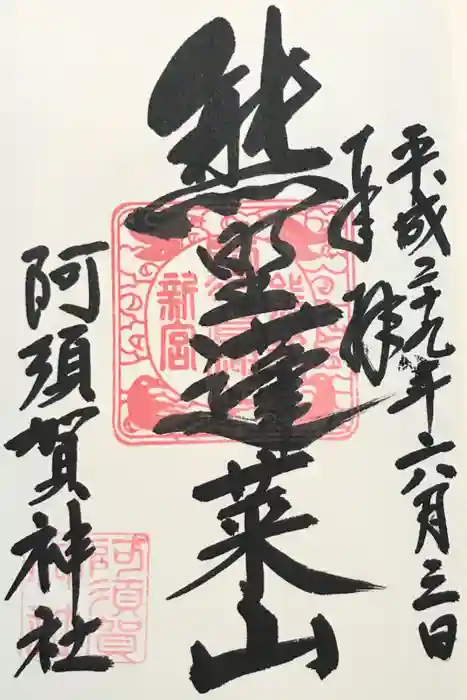 平成二十九年六月三日
奉拝
熊野蓬莱山
阿須賀神社
新宮
阿須賀